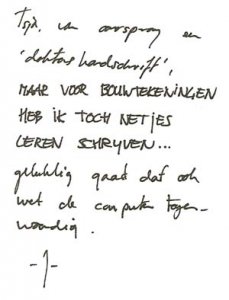 Tsja. van oorsprong een
'dokters handschrift',
MAAR VOOR BOUWTEKENINGEN
HEB IK TOCH NETJES
LEREN SCHRIJVEN...
gelukkig gaat dat ook
met de computer tegen-
woordig.
-J-